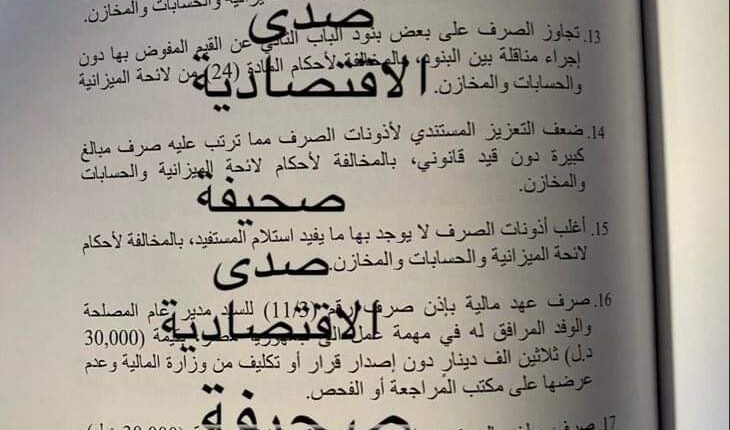 والحسابات والمخازن.
13. تجاوز الصرف على بعض بنود الباب الثاني عن القيم المفوض بها دون
إجراء مناقلة بين البنود، بالمخالفة لأحكام المادة (24) من لائحة الميزانية
والحسابات والمخازن.
14. ضعف التعزيز المستندي لأذونات الصرف مما ترتب عليه صرف مبالغ
كبيرة دون قيد قانوني، بالمخالفة لأحكام لائحة الميزانية والحسابات
والمخازن.
15. أغلب أذونات الصرف لا يوجد بها ما يفيد استلام المستفيد، بالمخالفة لأحكام
لائحة الميزانية والحسابات والمخازن.
16. صرف عهد مالية بإذن صرف رقم (11/3) للسيد مدير عام المصلحة
والوفد المرافق له في مهمة عمل (30,000
د.ل) ثلاثين الف دينار دون إصدار قرار أو تكليف من وزارة المالية وعدم
عرضها على مكتب المراجعة أو الفحص.
17. صرف
صدى
الاقتصادية
صحيفة
صدى
الاقتصادية
صحيفة